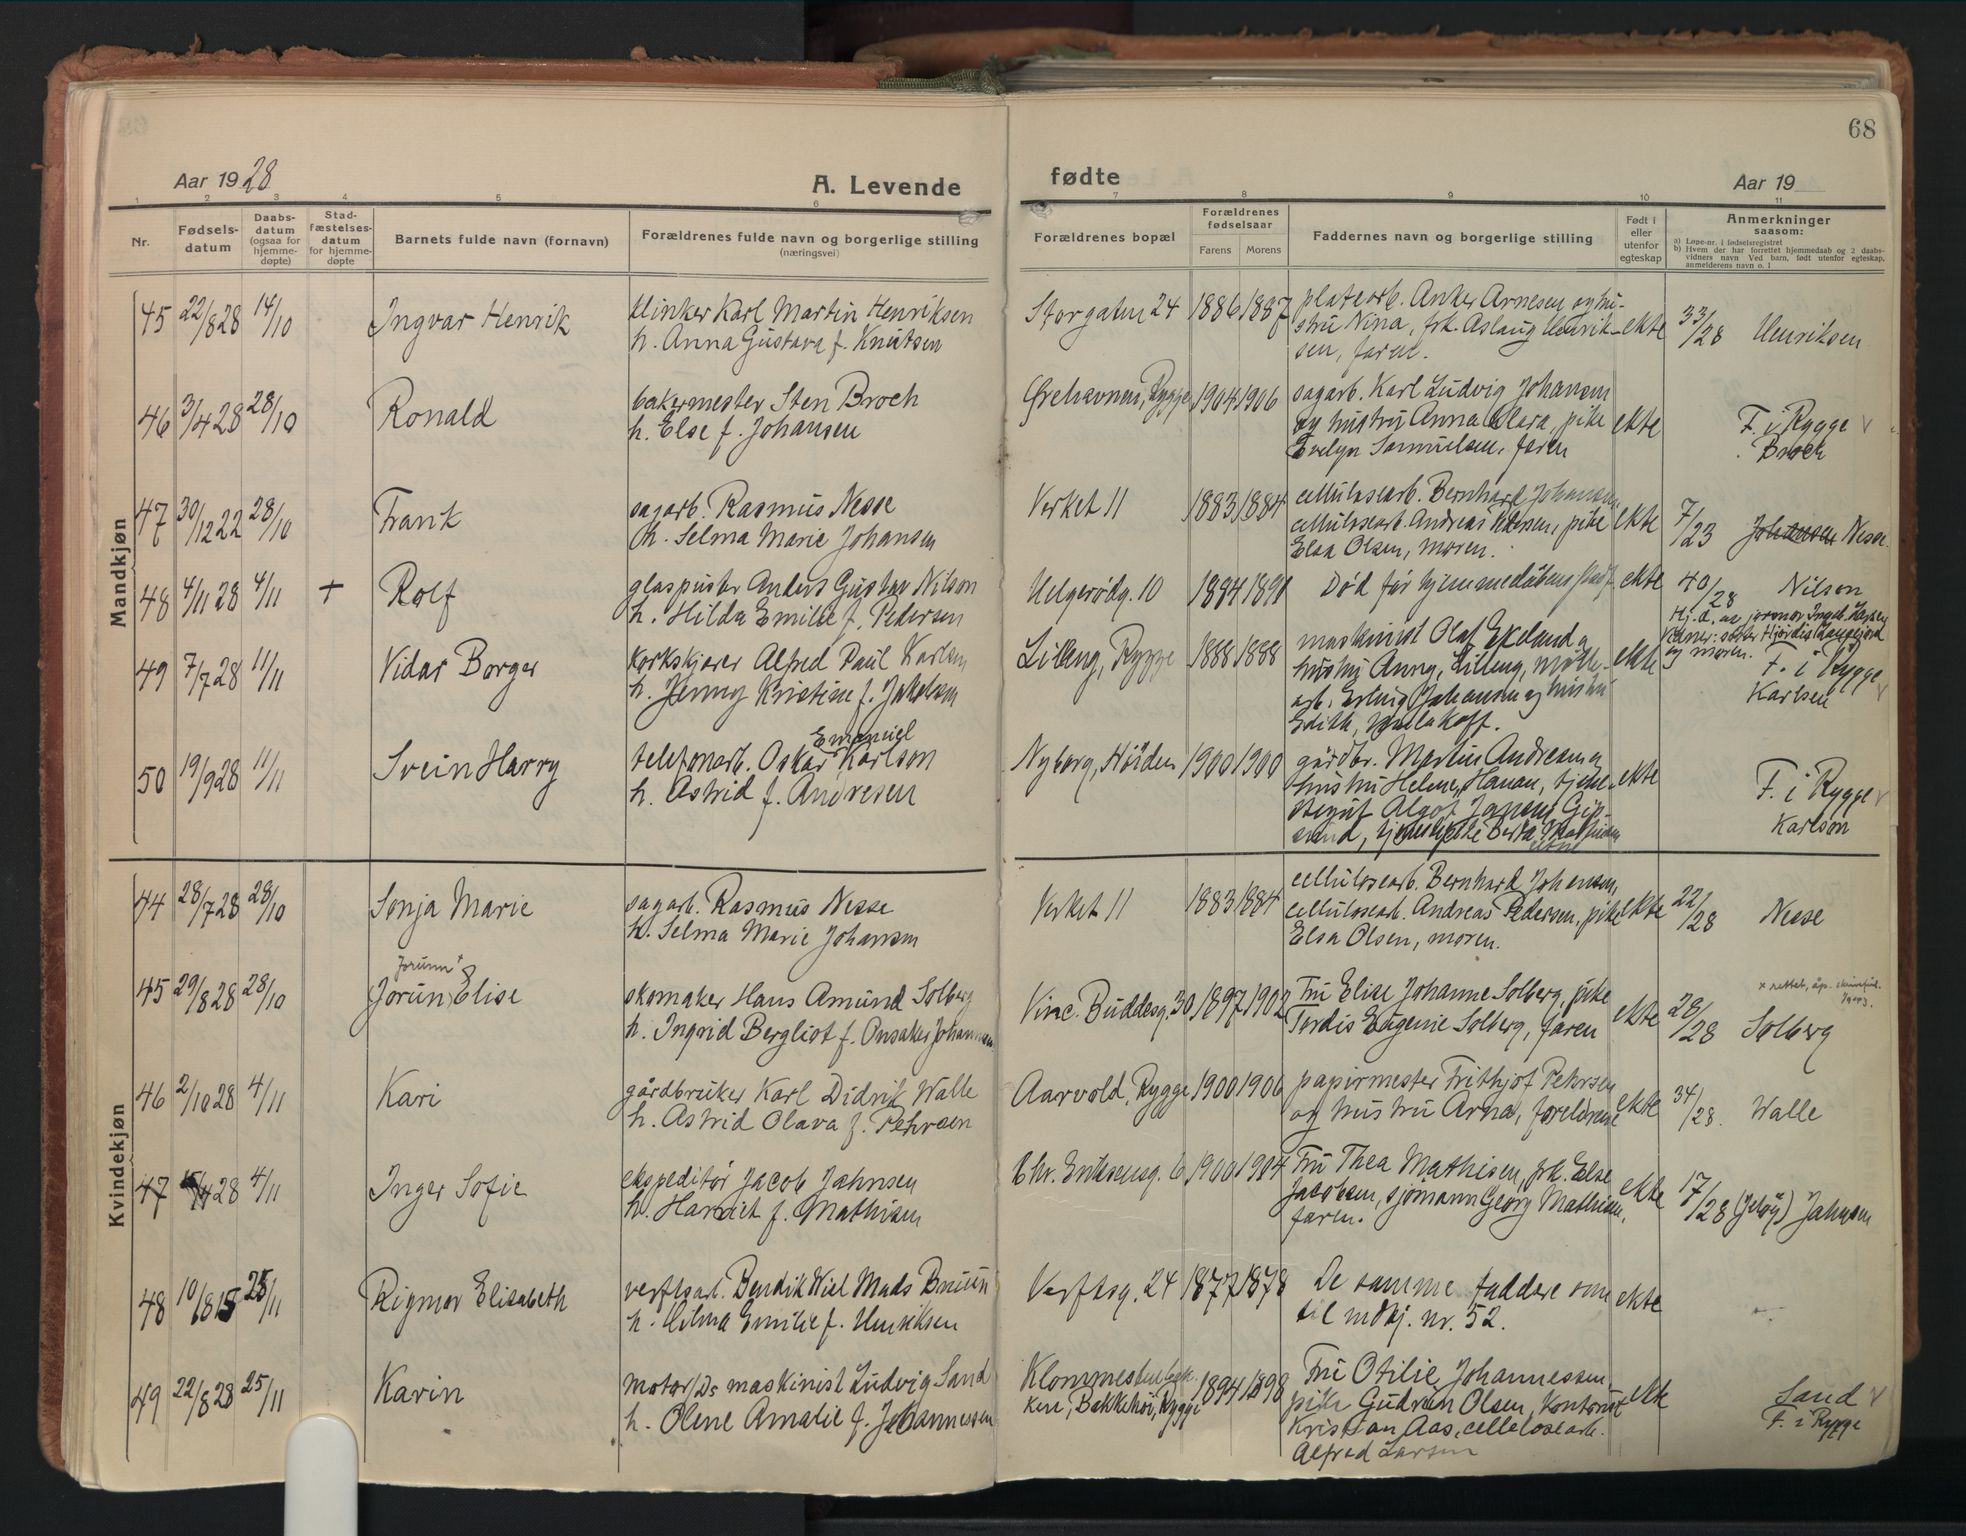 68
Aar 1928
A. Levende
fødte
Aar 19
1 2 3 4 5 6 7 8 9 10 11
Nr.
Fødsels-
datum
Daabs-
datum
(ogsaa for
hjemme-
døpte)
Stad-
fæstelses-
datum
for hjemme-
døpte
Barnets fulde navn (fornavn)
Forældrenes fulde navn og borgerlige stilling
(næringsvei)
Forældrenes bopæl
Forældrenes
fødselsaar
Farens Morens
Faddernes navn og borgerlige stilling
Født i
eller
utenfor
egteskap
Anmerkninger
saasom:
a) Løpe-nr. i fødselsregistret
b) Hvem der har forrettet hjemmedaab og 2 daabs-
vidners navn Ved barn, født utenfor egteskap,
anmelderens navn o. l
Mandkjøn
45 22/8 28 14/10 Ingvar Henrik
klinker Karl Martin Henriksen
h. Anna Gustava f. Knutsen
Storgaten 24 1886 1887
platearb. Anker Arnesen og hu-
stru Nina, frk. Aslaug Henrik-
sen, faren.
ekte 33/28 Henriksen
46 3/4 28 28/10 Ronald
bakermester Sten Broch
h. Else f. Johansen
Ørehavnen, Rygge 1904 1906
sagarb. Karl Ludvig Johansen
og hustru Anna Clara, pike
Evelyn Samuelsen, faren
ekte F. i Rygge
Broch
47 30/12 22 28/10 Frank
sagarb. Rasmus Nesse
h. Selma Marie Johansen
Verket 11 1883 1884
cellulosearb. Bernhard Johansen,
cellulosearb. Andreas Pedersen, pike
Elsa Olsen, moren.
ekte 7/23 Johansen Nesse.
48 4/11 28 4/11 + Rolf
glaspuster Anders Gustav Nilson
h. Hilda Emilie f. Pedersen
Helgerødg. 10 1894 1891
Død før hjemmedåbens stadf.
ekte 40/28 Nilson
Hj. d. av jormor Ingeb. Larsen
Vidner: søster Hjørdis
og moren.
49 7/7 28 11/11 Vidar Borger
korkskjærer Alfred Paul Karlsen
h. Jenny Kristine f. Jakobsen
Lilleng, Rygge 1888 1888
maskinist Olaf Ekelund og
hustru Anna, Lilleng,
arb. Erling Johansen og hustru
Edith,
ekte F. i Rygge
Karlsen
50 19/9 28 11/11 Svein Harry
Emanuel
telefonarb. Oskar Karlson
h. Astrid f. Andresen
Nyborg, Høiden 1900 1900
gårdbr. Martin Andresen og
hustru Helene, Hanan,
Algot Jansen, Gip-
sund, tjenestepike Berta Mathisen
ekte F. i Rygge
Karlson
Kvindekjøn
44 28/7 28 28/10 Sonja Marie
sagarb. Rasmus Nesse
h. Selma Marie Johansen
Verket 11 1883 1884
cellulosearb. Bernhard Johansen,
cellulosearb. Andreas Pedersen, pike
Elsa Olsen, moren.
ekte 22/28 Nesse
Jorunn +
45 29/8 28 28/10 Jorun Elise
skomaker Hans Amund Solberg
h. Ingrid Bergliot f. Onsaker Johannsen
Vinc. Buddesg. 30 1897 1902
Fru Elise Johanne Solberg, pike
Tordis Eugenie Solberg, faren
ekte 28/28 Solberg
x rettet,
46 2/10 28 4/11 Kari
gårdbruker Karl Didrik Walle
h. Astrid Olava f. Pehrsen
Aarvold, Rygge 1900 1906
papirmester Frithjof Pehrsen
og hustru Arna, foreldrene
ekte 34/28. Walle
47 28 4/11 Inger Sofie
ekspeditør Jacob Jahnsen
h. Harriet f. Mathisen
Chr. Eriksensg. 6 1900 1904
Fru Thea Mathisen, frk. Else
Jacobsen, sjømann Georg Mathisen,
faren.
ekte 17/28 (Jeløy) Jahnsen
48 10/8 15 25/11 Rigmor Elisabeth
verftsarb. Bendik Niel Mads Bruun
h. Hilma Emilie f. Henriksen
Verftsg. 24 1877 1878
De samme faddere som
til mdkj. nr. 52.
ekte
49 22/8 28 25/11 Karin
motor/Ds maskinist Ludvig Sand
h. Olene Amalie f. Johannessen
Bakkehøi, Rygge 1894 1898
Fru Otilie Johannessen,
pike Gudrun Olsen, kontorist
Kristian Aas, cellulosearb.
Alfred Larsen
ekte Sand
F. i Rygge